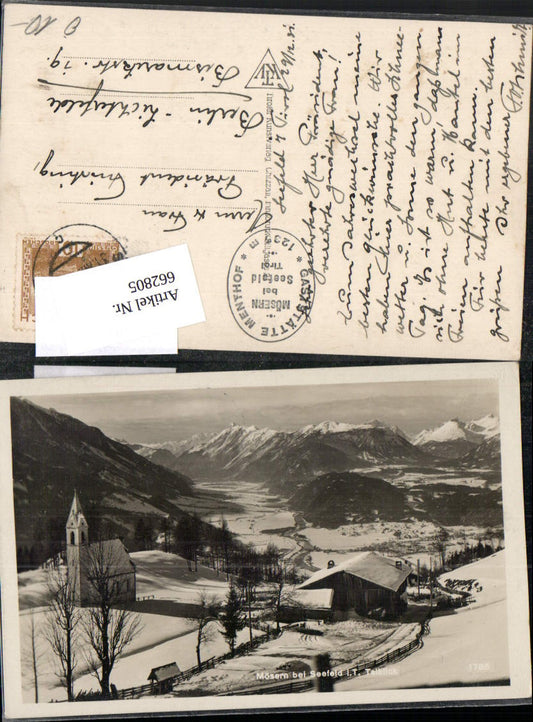 Ö 10.-
Seefeld i/Tirol 29/12.31.
Geehrter Herr Präsident,
verehrte gnädige Frau!
Zum Jahreswechsel meine
besten Glückwünsche. Wir
haben hier prachtvolles Schnee-
wetter u. Sonne den ganzen
Tag. Es ist so warm, daß man
sich ohne Hut u. Mantel im
Freien aufhalten kann.
Für heute mit den besten
Grüßen Ihr ergebener
Herrn u. Frau
Präsident
Berlin - Lichterfelde
Bismarckstr. 19
GASTSTÄTTE MENTHOF
MÖSERN
bei
Seefeld
Tirol
Artikel Nr.
662805
Mösern bei Seefeld i.T. Talblick
1786